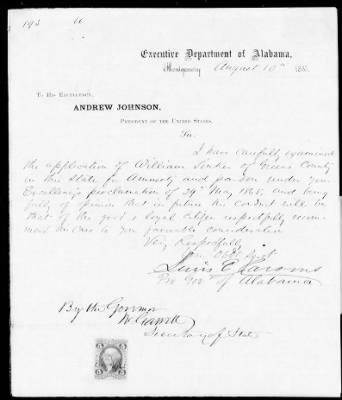 Executive Department of Alabama,
Montgomery August 10th 186
To His Excellency,
ANDREW JOHNSON,
President of the United States.
Sir
I have carefully examined
the application of William of Greene County
in this State for Amnesty and pardon under your
Excellency's proclamation of 29th May 1865, and being
fully of opinion that in future his conduct will be
that of the good & loyal citizen respectfully recom-
mend his case to your favorable consideration
Very Respectfully
Your Obt Svt
Lewis E Parsons
Pro Gov of Alabama
By the Governor
Secretary of State